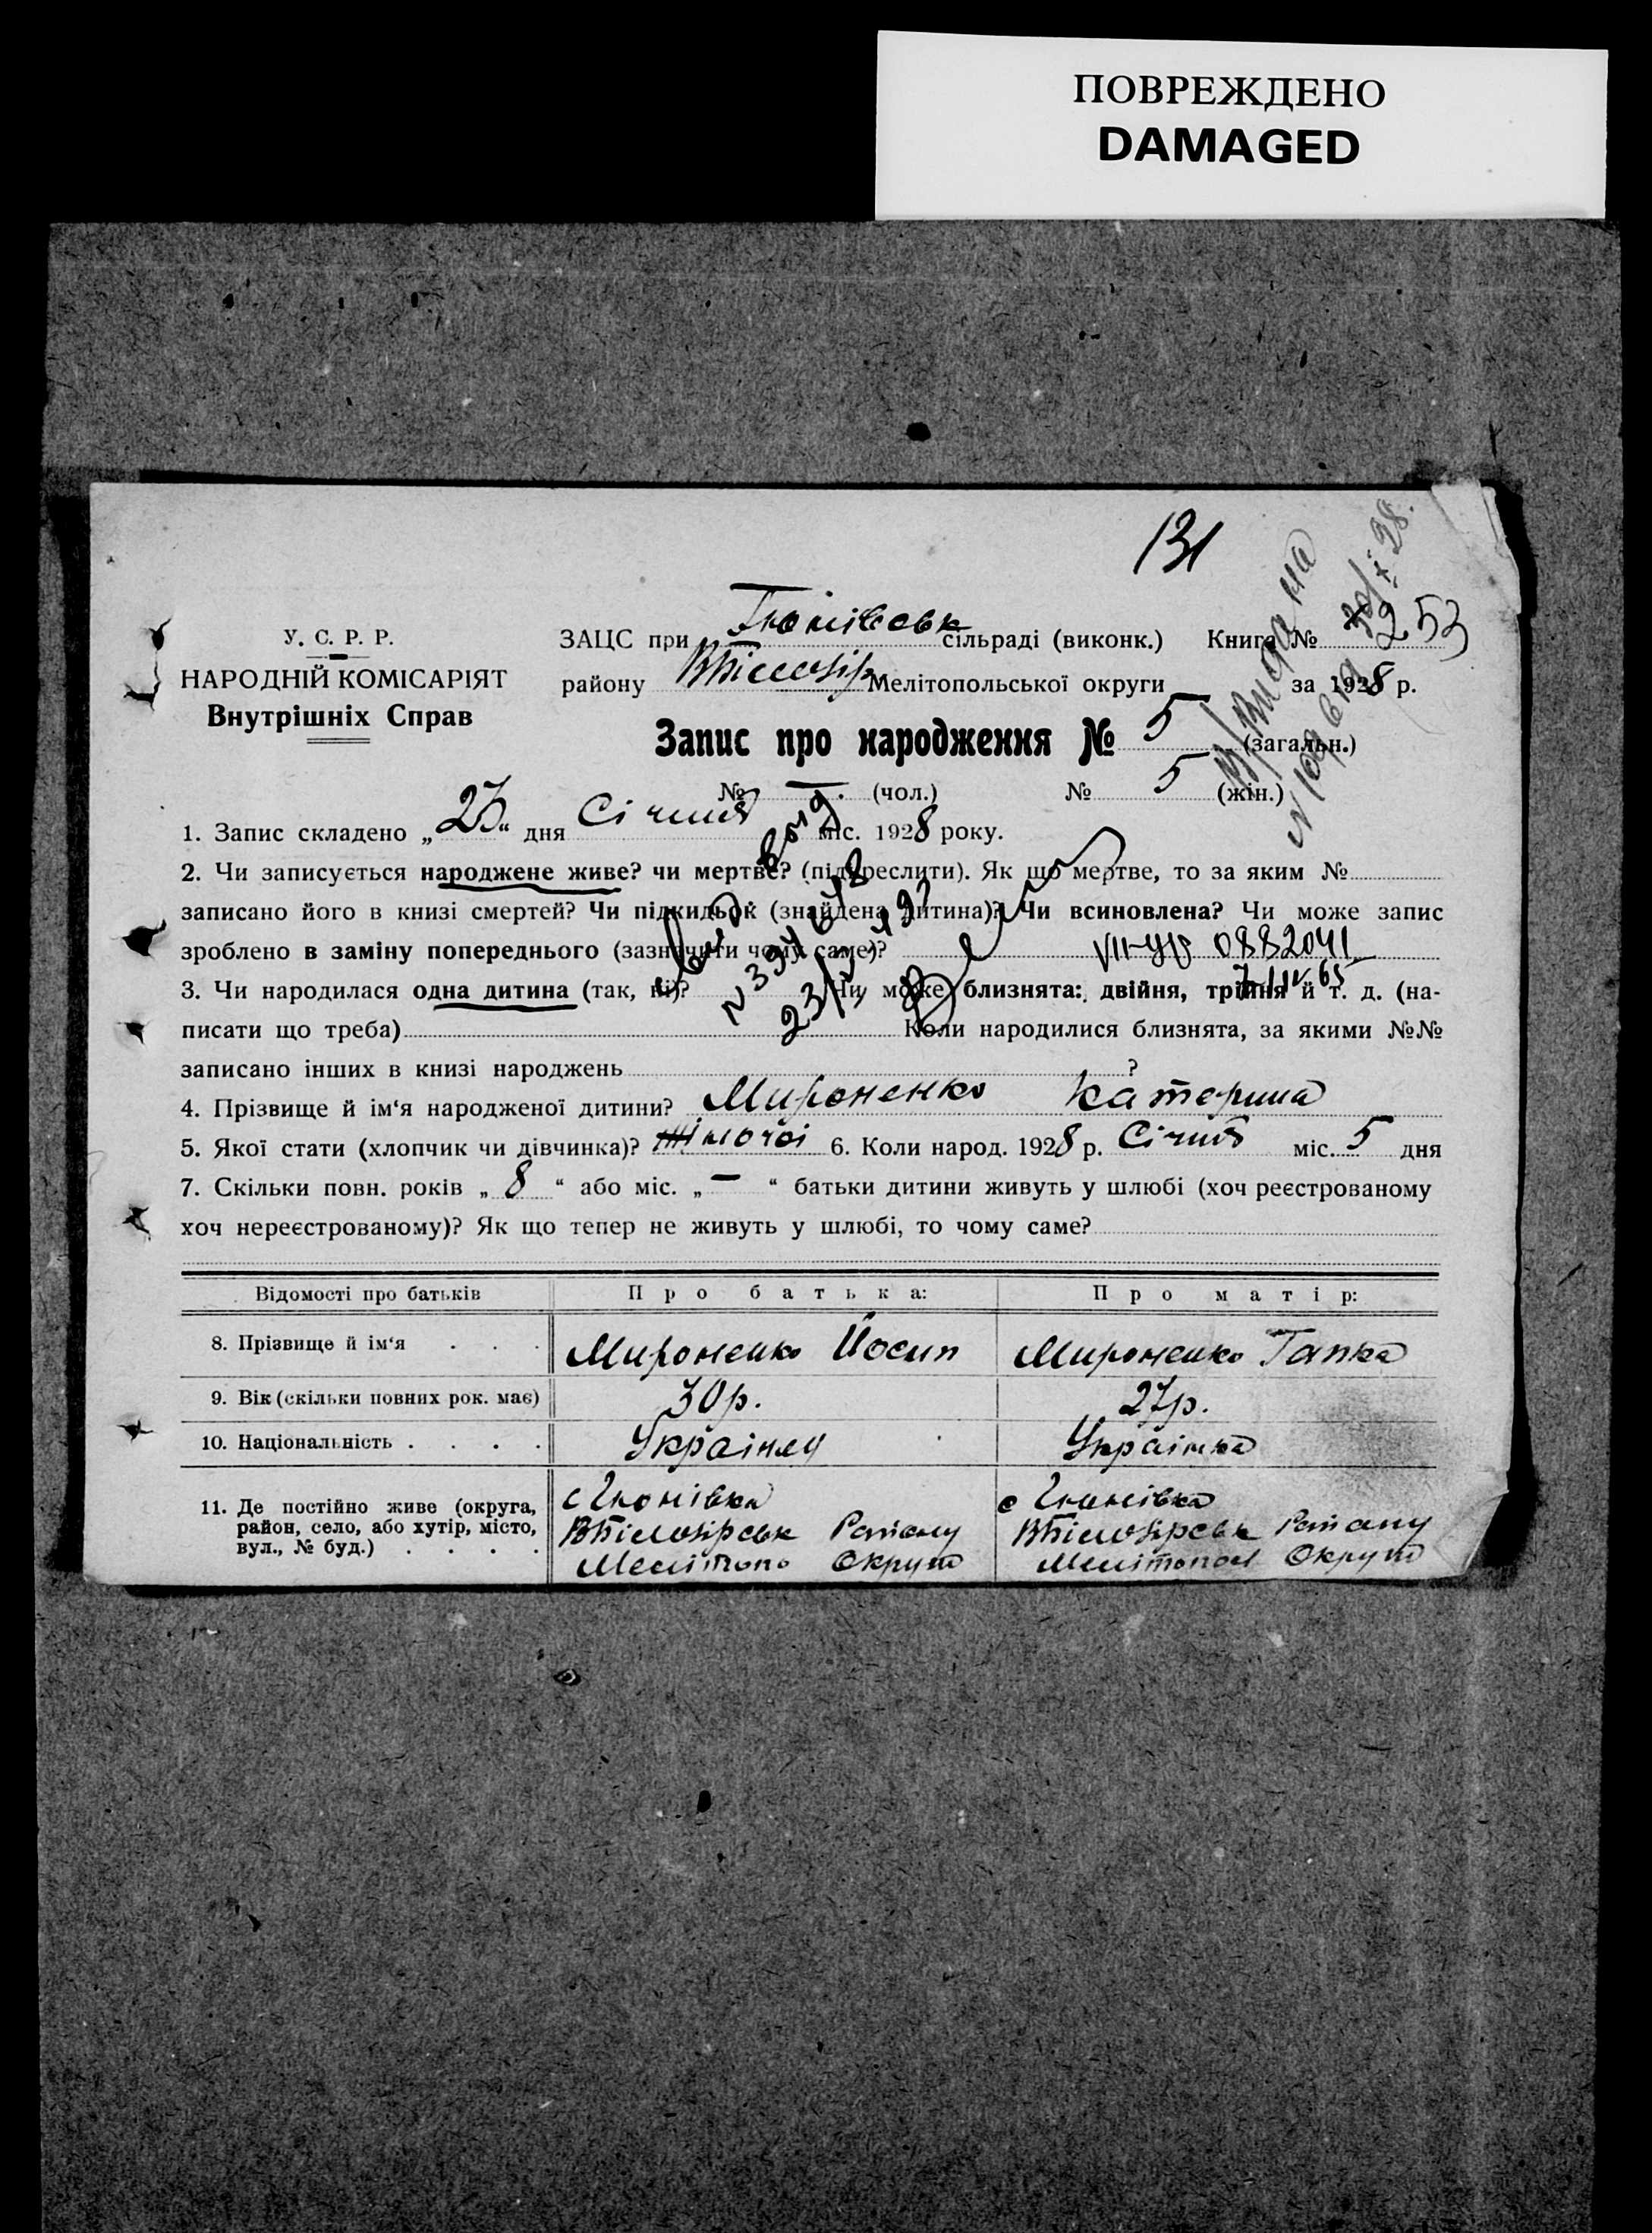 ПОВРЕЖДЕНО
DAMAGED
131
У. С. Р. Р.
НАРОДНІЙ КОМІСАРІЯТ
Внутрішніх Справ
ЗАЦС при сільраді (виконк.) Книга № 253
району Мелітопольської округи за 1928 р.
Запис про народження № 5 (загальн.)
№ — (чол.) № 5 (жін.)
1. Запис складено „ “ дня Січня міс. 1928 року.
2. Чи записується народжене живе? чи мертве? (підкреслити). Як що мертве, то за яким №
записано його в книзі смертей? Чи підкидьок (знайдена дитина)? Чи всиновлена? Чи може запис
зроблено в заміну попереднього (зазначити чому саме)? VII-УР 0882041
3. Чи народилася одна дитина (так, ні)? Чи може близнята: двійня, трійня й т. д. (на-
писати що треба) Коли народилися близнята, за якими №№
записано інших в книзі народжень ?
4. Прізвище й ім‘я народженої дитини? Мироненко Катерина
5. Якої стати (хлопчик чи дівчинка)? Жіночоі 6. Коли народ. 1928 р. Січня міс. 5 дня
7. Скільки повн. років „ 8 “ або міс. „ — “ батьки дитини живуть у шлюбі (хоч реєстрованому
хоч нереєстрованому)? Як що тепер не живуть у шлюбі, то чому саме?
Відомості про батьків Про батька: Про матір:
8. Прізвище й ім‘я . . . Мироненко Йосип Мироненко Гапка
9. Вік (скільки повних рок. має) 30р. 27р.
10. Національність . . . . Украінец Украінка
11. Де постійно живе (округа,
район, село, або хутір, місто,
вул., № буд.) . . . .
с Гюнівка
ВБілозірськ Району
Мелітопо Округи
с Гюнівка
ВБілозірськ Району
Мелітопол Округи